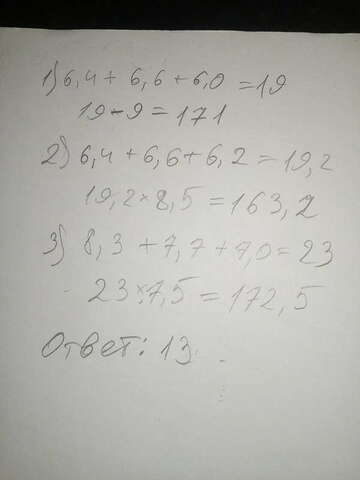 1) 6,4 + 6,6 + 6,0 = 19
19 - 9 = 171
2) 6,4 + 6,6 + 6,2 = 19,2
19,2 × 8,5 = 163,2
3) 8,3 + 7,7 + 7,0 = 23
23 × 7,5 = 172,5
Ответ: 13.